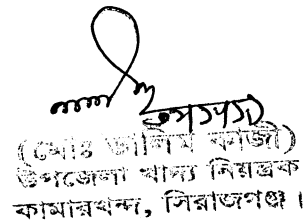 (মোঃ জালিম কাজী)
উপজেলা খাদ্য নিয়ন্ত্রক
কামারখন্দ, সিরাজগঞ্জ।